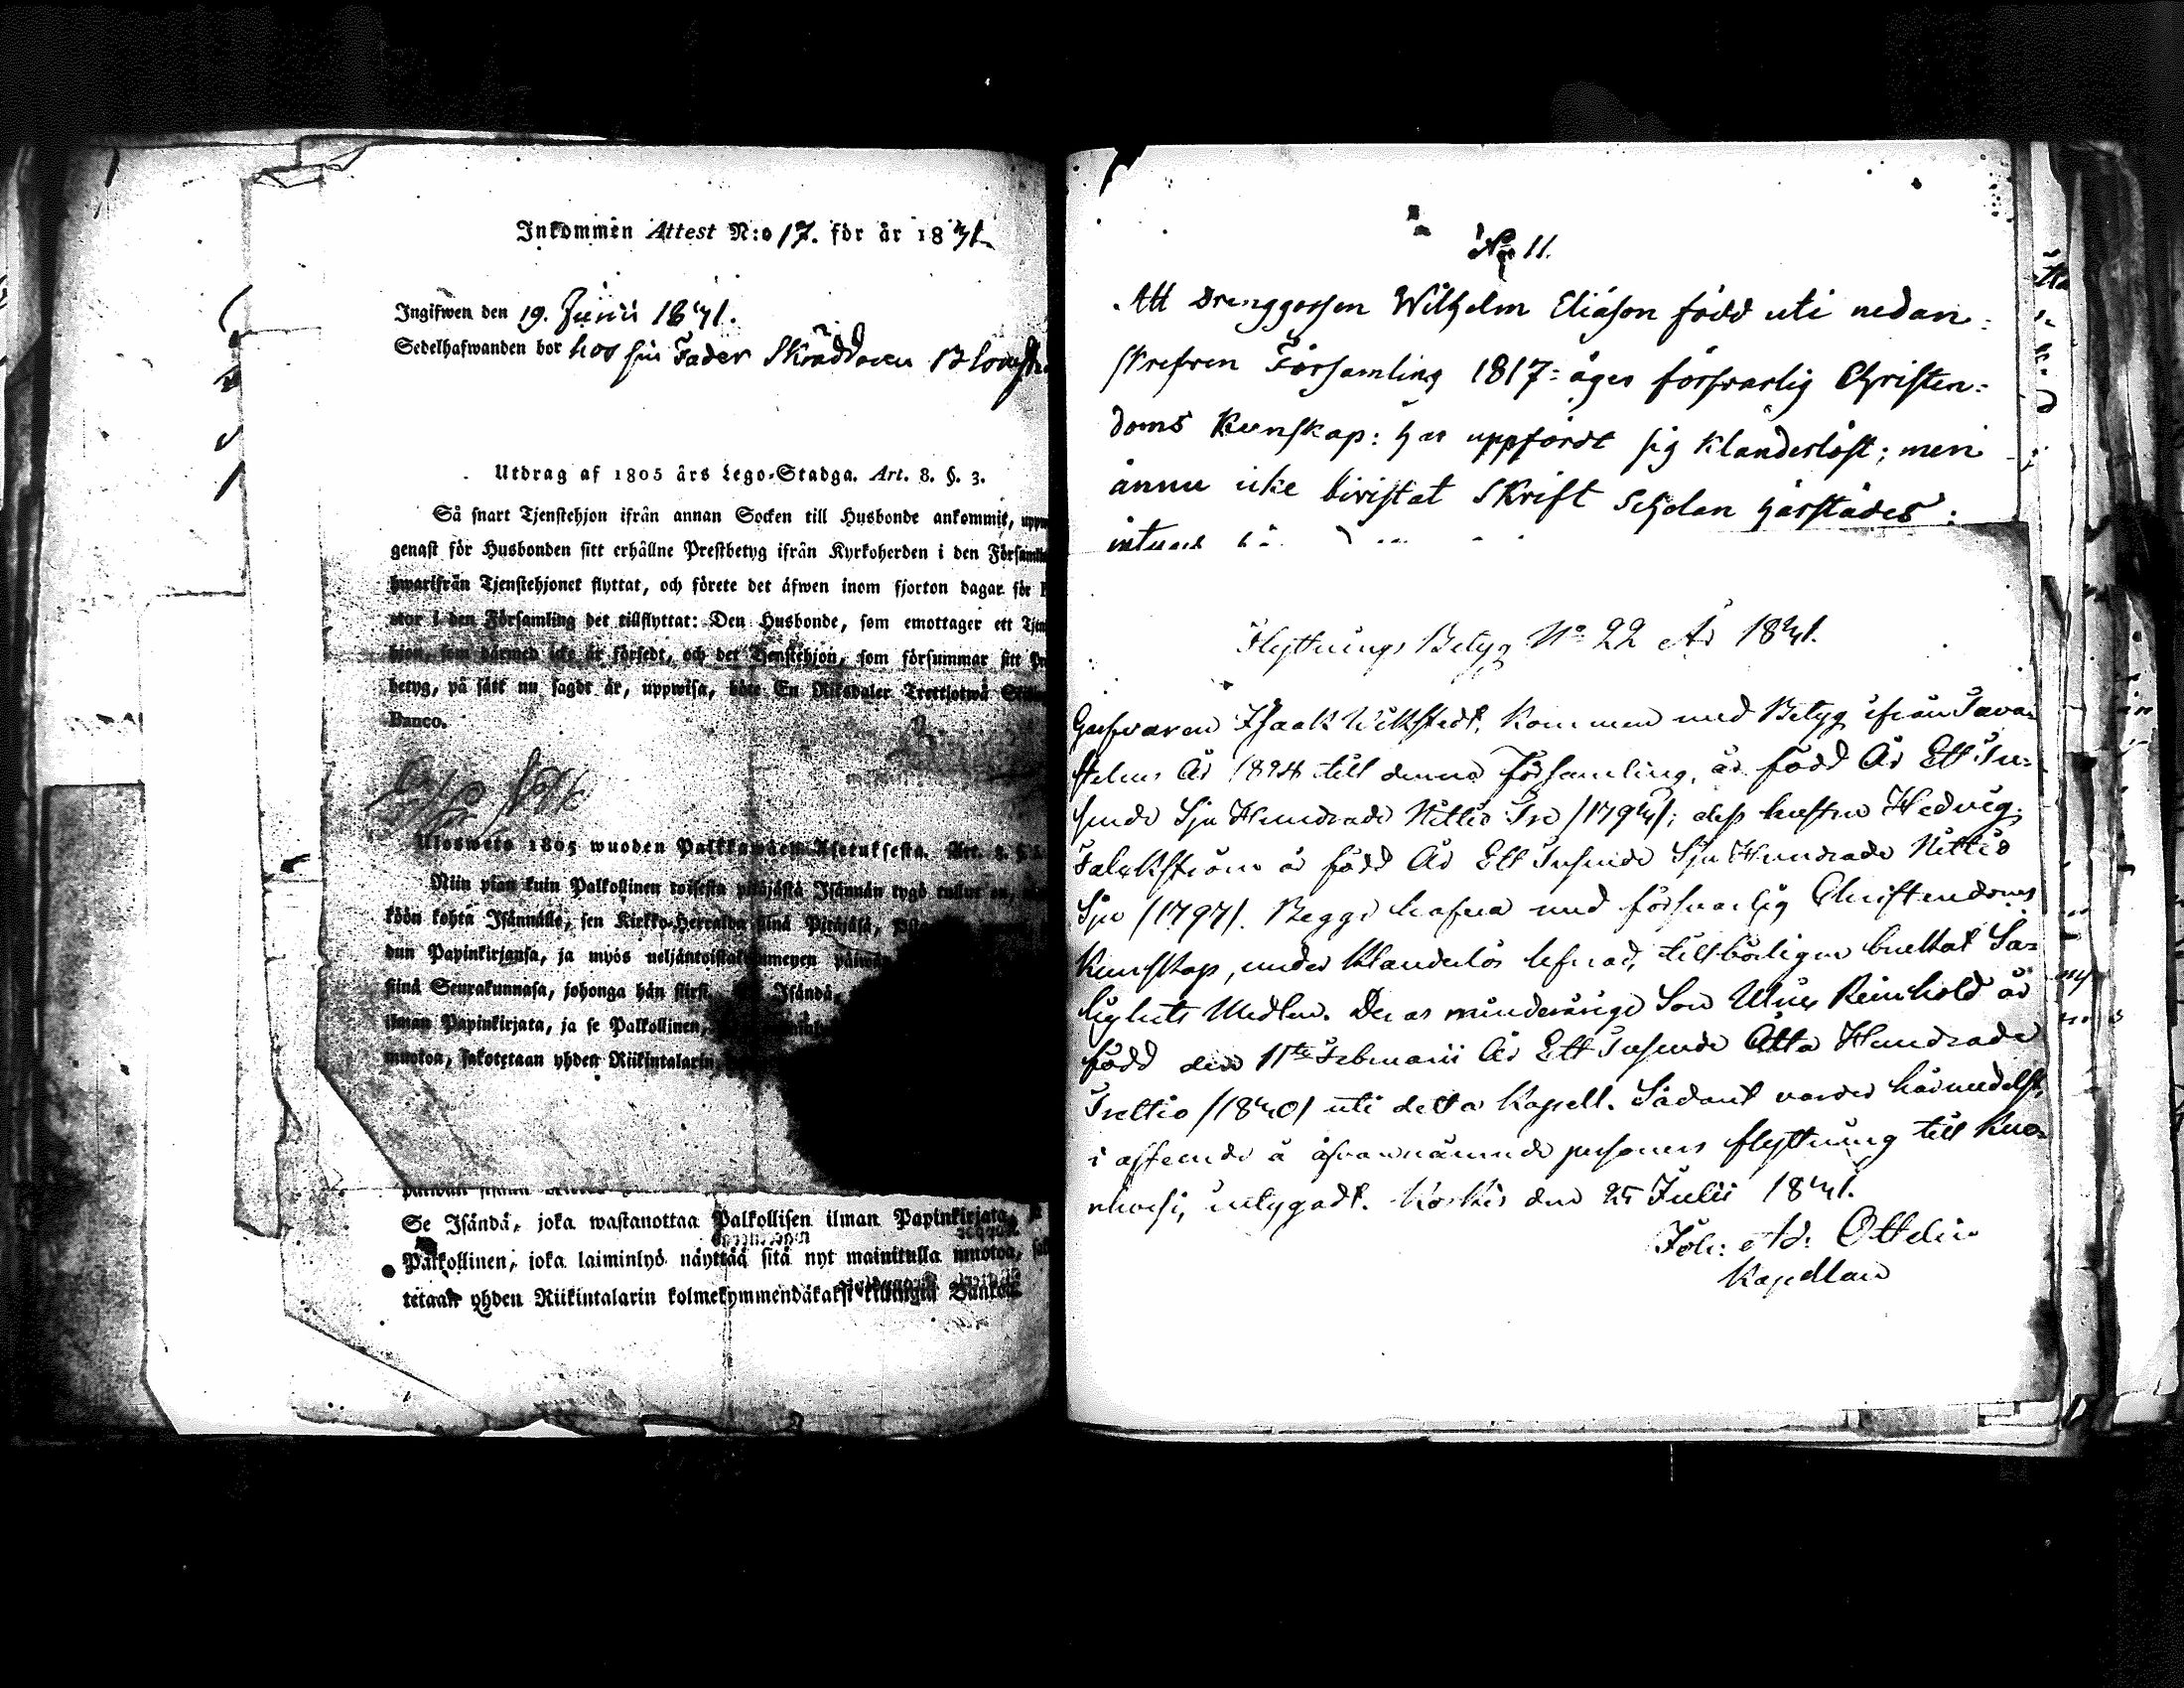 Inkommen Attest N:o 17. för år 1841
Ingifwen den 19. Junii 1841.
Sedelhafwanden bor hos sin Fader Skräddaren
Utdrag af 1805 års Lego-Stadga. Art. 8. §. 3.
Så snart Tjenstehjon ifrån annan Socken till Husbonde ankommit,
genast för Husbonden sitt erhållne Prestbetyg ifrån Kyrkoherden i den
hwarifrån Tjenstehjonet flyttat, och förete det äfwen inom fjorton dagar för
stor i den Församling det tillflyttat: Den Husbonde, som emottager ett
hjon, som därmed icke är försedt, och det Tjenstehjon, som försummar sitt
betyg, på sätt nu sagdt är, uppwisa, böte En Riksdaler Trettiotwå
Banco.
Ulosweto 1805 wuoden Palkkawäen Asetuksesta. Art. 8. §.
Niin pian kuin Palkollinen toisesta pitäjästä Isännän tygö tullut on,
köön kohta Isännälle, sen Kirkko-Herralda siinä Pitäjäsä,
dun Papinkirjansa, ja myös neljäntoistakymmenen päiwän
siinä Seurakunnasa, johonga hän siirsi. Isändä,
ilman Papinkirjata, ja se Palkollinen,
muotoa, sakotetaan yhden Riikintalarin
Se Isändä, joka wastanottaa Palkollisen ilman Papinkirjata,
Palkollinen, joka laiminlyö näyttää sitä nyt mainitulla muotoa,
tetaan yhden Riikintalarin kolmekymmendäkaksi killingiä Bankoa.
No 11.
Att Drenggossen Wilhelm Eliasson född uti nedan=
skrefven Församling 1817: äger försvarlig Christen=
doms Kunskap: har uppfördt sig klanderlöst; men
ännu icke bivistat Skrift Scholan härstädes:
Flyttnings Betyg No 22 År 1841.
Garfvaren Isaak Wikstedt, kommen med Betyg ifrån Tava=
stehus År till denna Församling, är född År Ett Tu=
sende Sju Hundrade Nittio Tre; dess hustru Hedvig
Falckström är född År Ett Tusende Sju Hundrade Nittio
Sju /1797/. Begge hafva med försvarlig Christendoms
Kunskap, under klanderlös lefnad, tillbörligen bruttat Sa=
lighets Medlen. Deras minderårige Son Reinhold är
född den 11te Februarii År Ett Tusende Åtta Hundrade
/1840/ uti detta Kapell. Sådant varder härmedelst,
i afseende å åfvannämnde personers flyttning till Kuo=
intygadt. Koskis den 25 Julii 1841.
Joh: Ad: Ottelin
Kapellan